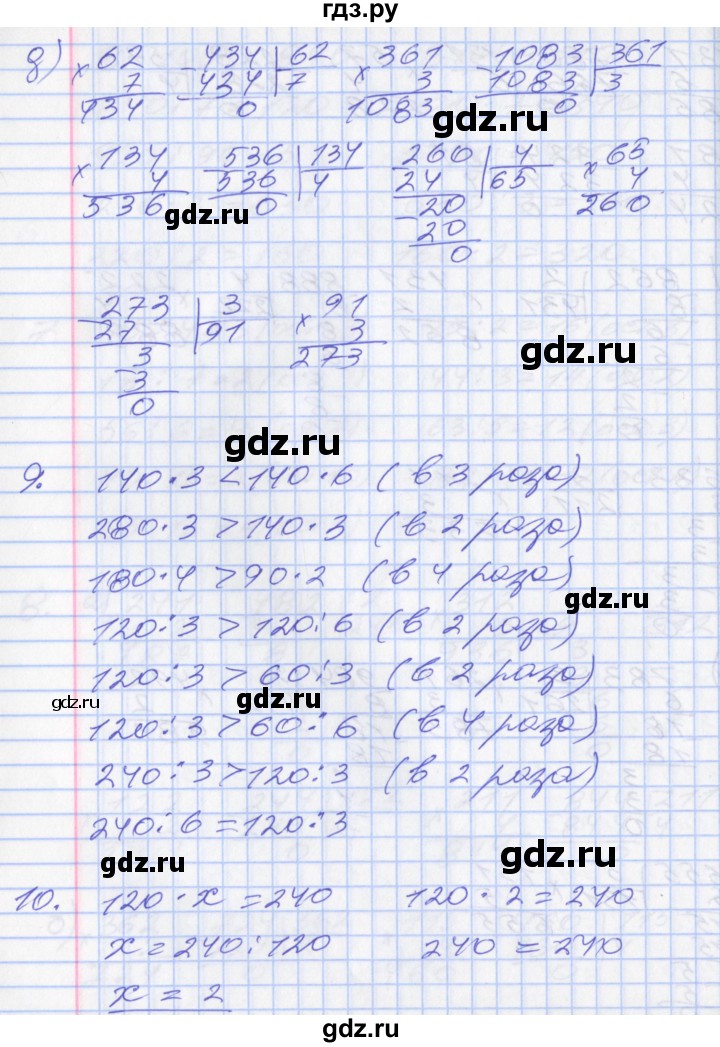 гдз.ру
д) 62 434 | 62 361 1083 | 361
× 7 - 434 7 × 3 - 1083 3
434 0 1083 0
gdz.ru
134 536 | 134 260 | 4 65
× 4 - 536 4 24 65 × 4
536 0 - 20 260
gdz.ru
20
0
273 | 3 91
- 27 91 × 3
3 273
- 3
0
gdz.ru
gdz.ru
9. 140·3 < 140·6 (в 3 раза)
280·3 > 140·3 (в 2 раза)
180·4 > 90·2 (в 4 раза)
gdz.ru
120:3 > 120:6 (в 2 раза)
120:3 > 60:3 (в 2 раза)
gdz.ru gdz.ru
120:3 > 60:6 (в 4 раза)
240:3 > 120:3 (в 2 раза)
240:6 = 120:3
gdz.ru gdz.ru
10. 120·x = 240 120·2 = 240
x = 240:120 240 = 240
x = 2
gdz.ru